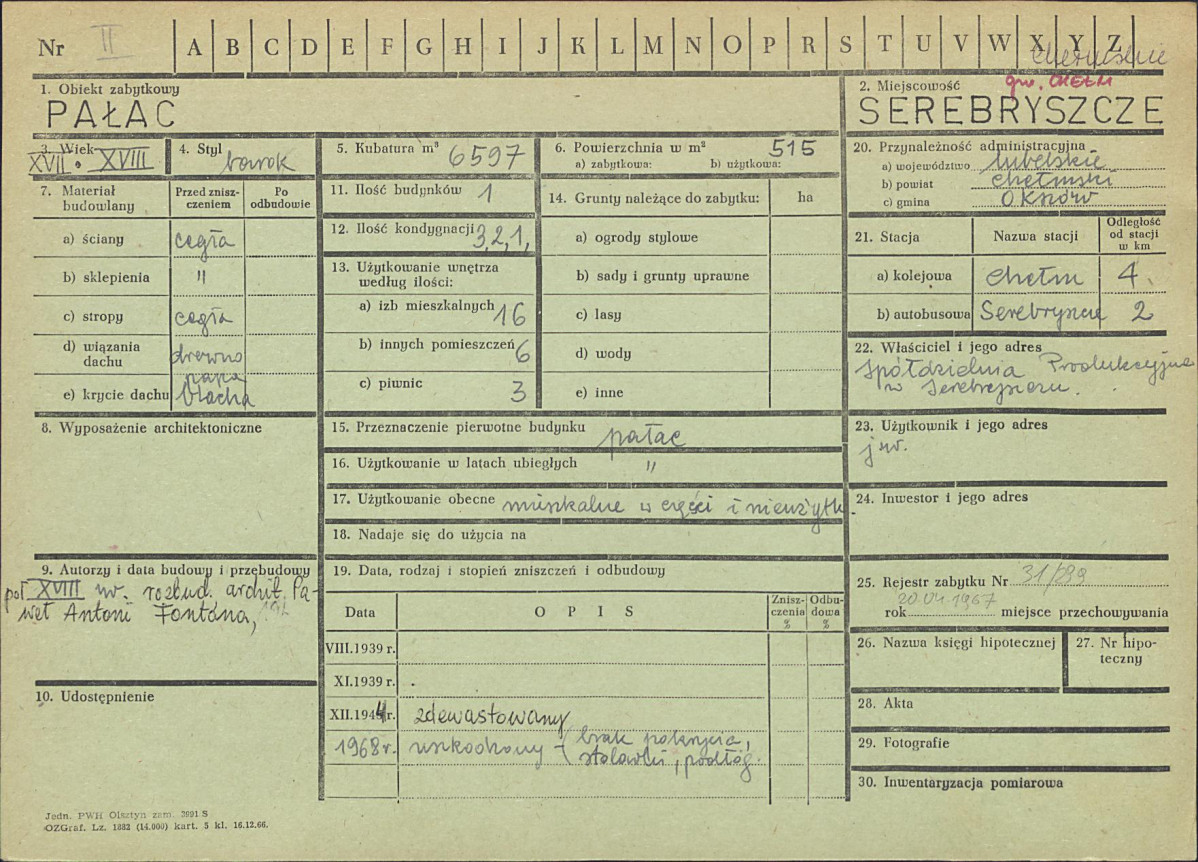 Nr II A B C D E F G H I J K L M N O P R S T U V W X Y Z
gm. CHEŁM
1. Obiekt zabytkowy
PAŁAC
2. Miejscowość
SEREBRYSZCZE
3. Wiek
XVII XVIII
4. Styl
barok
5. Kubatura m³ 6597
6. Powierzchnia w m² 515
a) zabytkowa: b) użytkowa:
20. Przynależność administracyjna
a) województwo lubelskie
b) powiat chełmski
c) gmina Okszów
7. Materiał budowlany
Przed zniszczeniem
Po odbudowie
a) ściany cegła
b) sklepienia "
c) stropy cegła
d) wiązania dachu drewno
e) krycie dachu papa blacha
11. Ilość budynków 1
12. Ilość kondygnacji 3,2,1,
13. Użytkowanie wnętrza według ilości:
a) izb mieszkalnych 16
b) innych pomieszczeń 6
c) piwnic 3
14. Grunty należące do zabytku: ha
a) ogrody stylowe
b) sady i grunty uprawne
c) lasy
d) wody
e) inne
21. Stacja
Nazwa stacji
Odległość od stacji w km
a) kolejowa Chełm 4
b) autobusowa Serebryszcze 2
22. Właściciel i jego adres
Spółdzielnia Produkcyjna
w Serebryszczu.
8. Wyposażenie architektoniczne
15. Przeznaczenie pierwotne budynku pałac
16. Użytkowanie w latach ubiegłych "
17. Użytkowanie obecne mieszkalne w części i nieużytk
18. Nadaje się do użycia na
23. Użytkownik i jego adres
jw.
24. Inwestor i jego adres
9. Autorzy i data budowy i przebudowy
poł XVIII w. rozbud. archit. Pa-
weł Antoni Fontana,
10. Udostępnienie
19. Data, rodzaj i stopień zniszczeń i odbudowy
Data
OPIS
Zniszczenia %
Odbudowa %
VIII.1939 r.
XI.1939 r.
XII.1944 r. zdewastowany
1968 r. uszkodzony - (brak pokrycia,
stolarki, podłóg.
25. Rejestr zabytku Nr 31/289
rok 20.04.1967 miejsce przechowywania
26. Nazwa księgi hipotecznej
27. Nr hipoteczny
28. Akta
29. Fotografie
30. Inwentaryzacja pomiarowa
Jedn. PWH Olsztyn zam. 3991 S
OZGraf. Lz. 1882 (14.000) kart. 5 kl. 16.12.66.